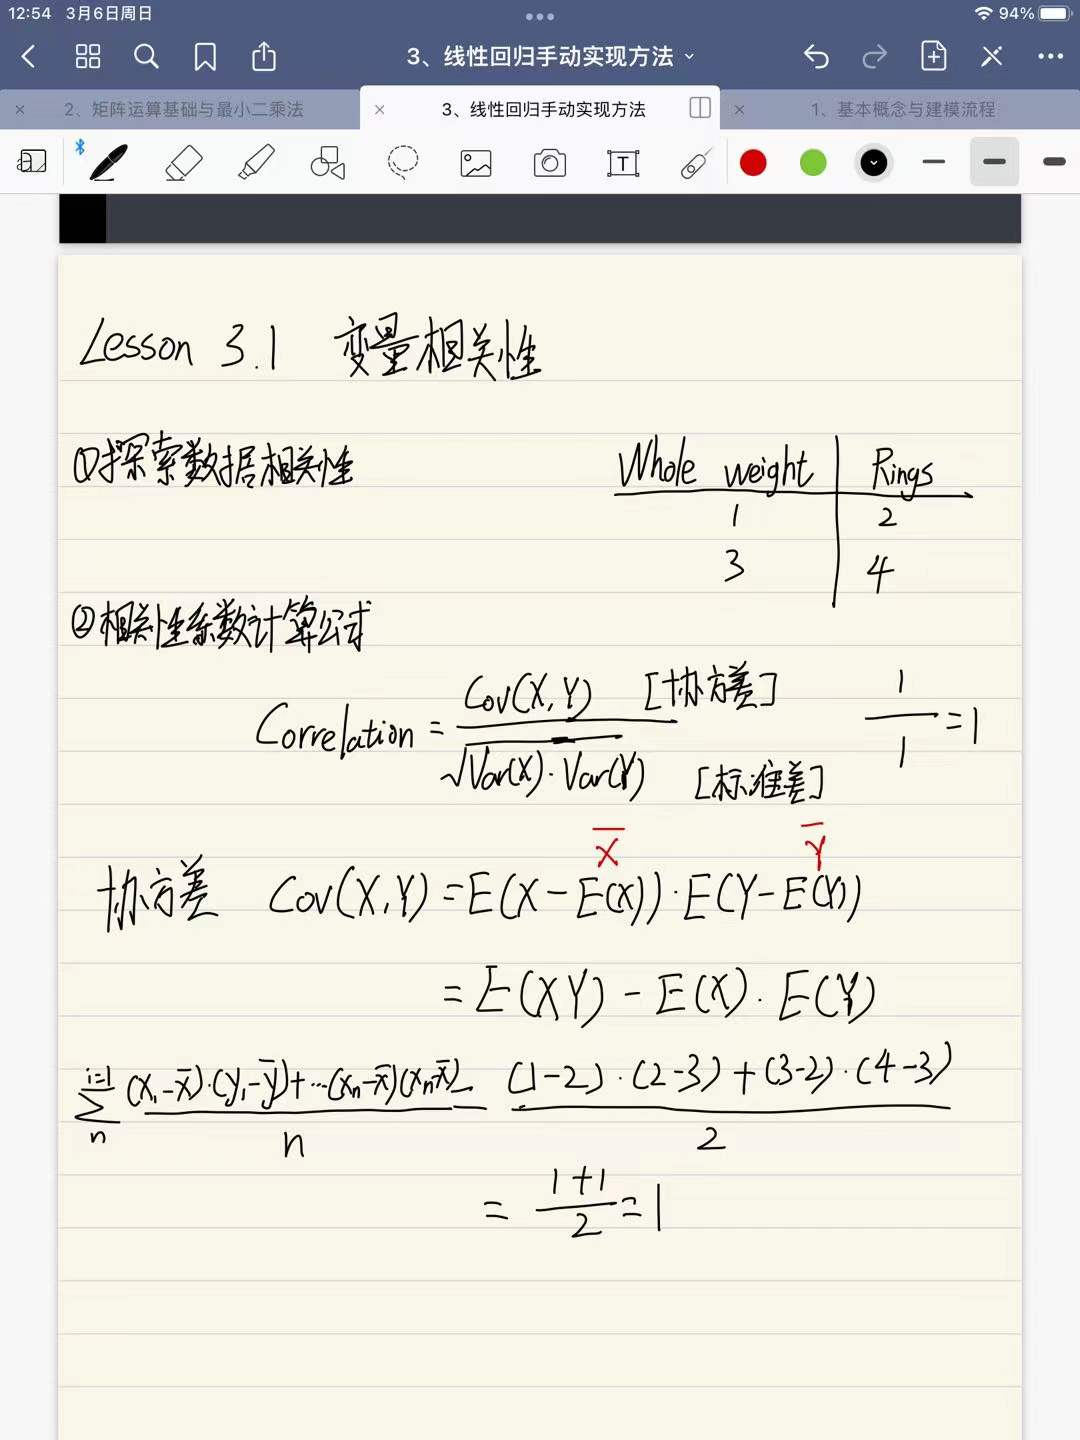 12:54 3月6日周日 94%
3、线性回归手动实现方法
2、矩阵运算基础与最小二乘法
3、线性回归手动实现方法
1、基本概念与建模流程
Lesson 3.1 变量相关性
①探索数据相关性
Whole weight Rings
1 2
3 4
②相关性系数计算公式
Correlation = Cov(X,Y) / √Var(X)·Var(Y) [协方差] [标准差] 1/1 = 1
X̅ Y̅
协方差 Cov(X,Y) = E(X-E(X))·E(Y-E(Y))
= E(XY) - E(X)·E(Y)
i=1 ∑ n (x₁-x̅)·(y₁-y̅)+…(xₙ-x̅)(xₙx̅) / n = (1-2)·(2-3)+(3-2)·(4-3) / 2
= 1+1 / 2 = 1